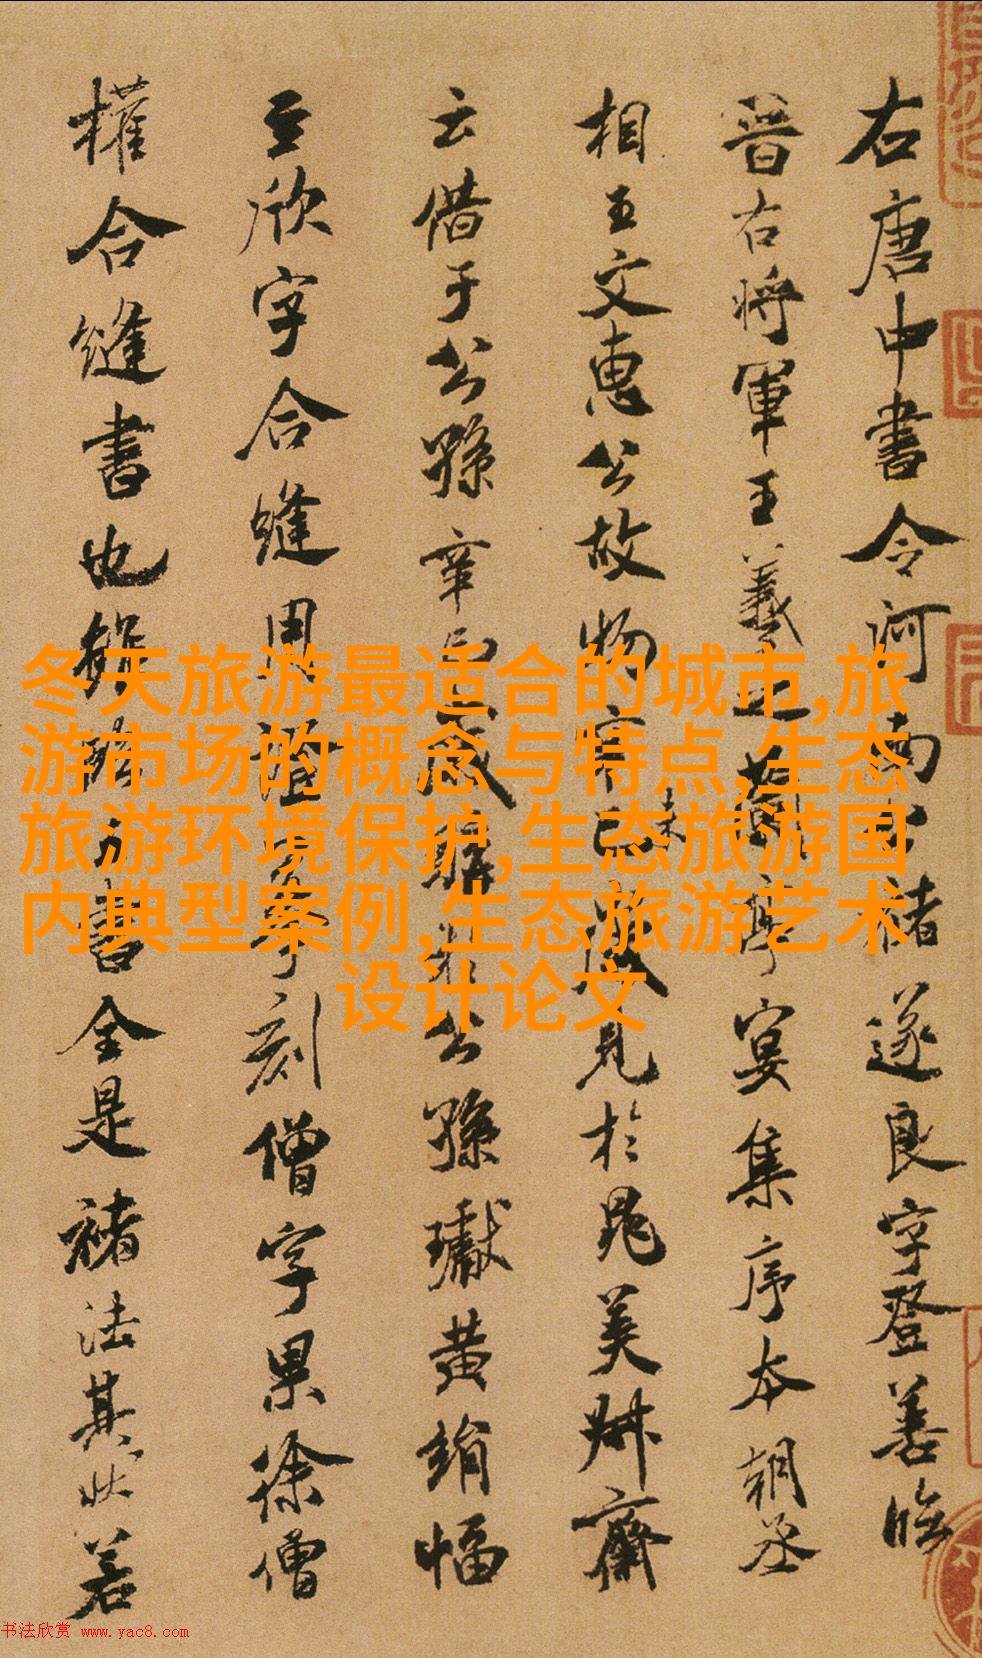 右唐中書令河南公褚遂良字登善臨
晉右將軍王羲之蘭亭宴集序本朝丞
相王文惠公故物未歲見於晁美叔齋
云借于公孫辛巳歲購公孫瓛黃絹幅
至欣字合縫用證摹刻僧字果徐僧
權合縫書也雖臨王書全是褚法其狀若
冬天旅游最适合的城市,旅
游市场的概念与特点,生态
旅游环境保护,生态旅游国
内典型案例,生态旅游艺术
设计论文
书法欣赏 www.yac8.com